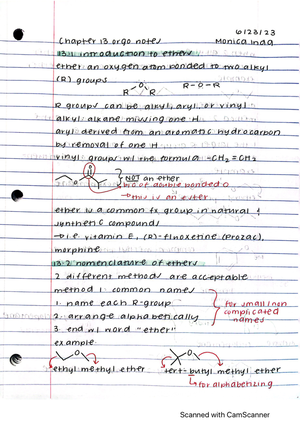 6/23/23
Chapter 13 orgo notes Monica Inda
13.1 introduction to ethers
ether an oxygen atom bonded to two alkyl
(R) groups
R O R R-O-R
R groups can be alkyl, aryl, or vinyl
alkyl alkane missing one H
aryl derived from an aromatic hydrocarbon
by removal of one H
vinyl groups w/ the formula -CH2=CH2
NOT an ether
b/c of double bonded O
→ this is an ester
ether is a common fx group in natural &
synthetic compounds
→ i.e vitamin E, (R)-fluoxetine (prozac),
morphine
13.2 nomenclature of ethers
2 different methods are acceptable
method 1: common names
1. name each R-group
2. arrange alphabetically
3. end w/ word "ether"
for small/non
complicated
names
example
ethyl methyl ether tert-butyl methyl ether
↳ for alphabetizing
Scanned with CamScanner